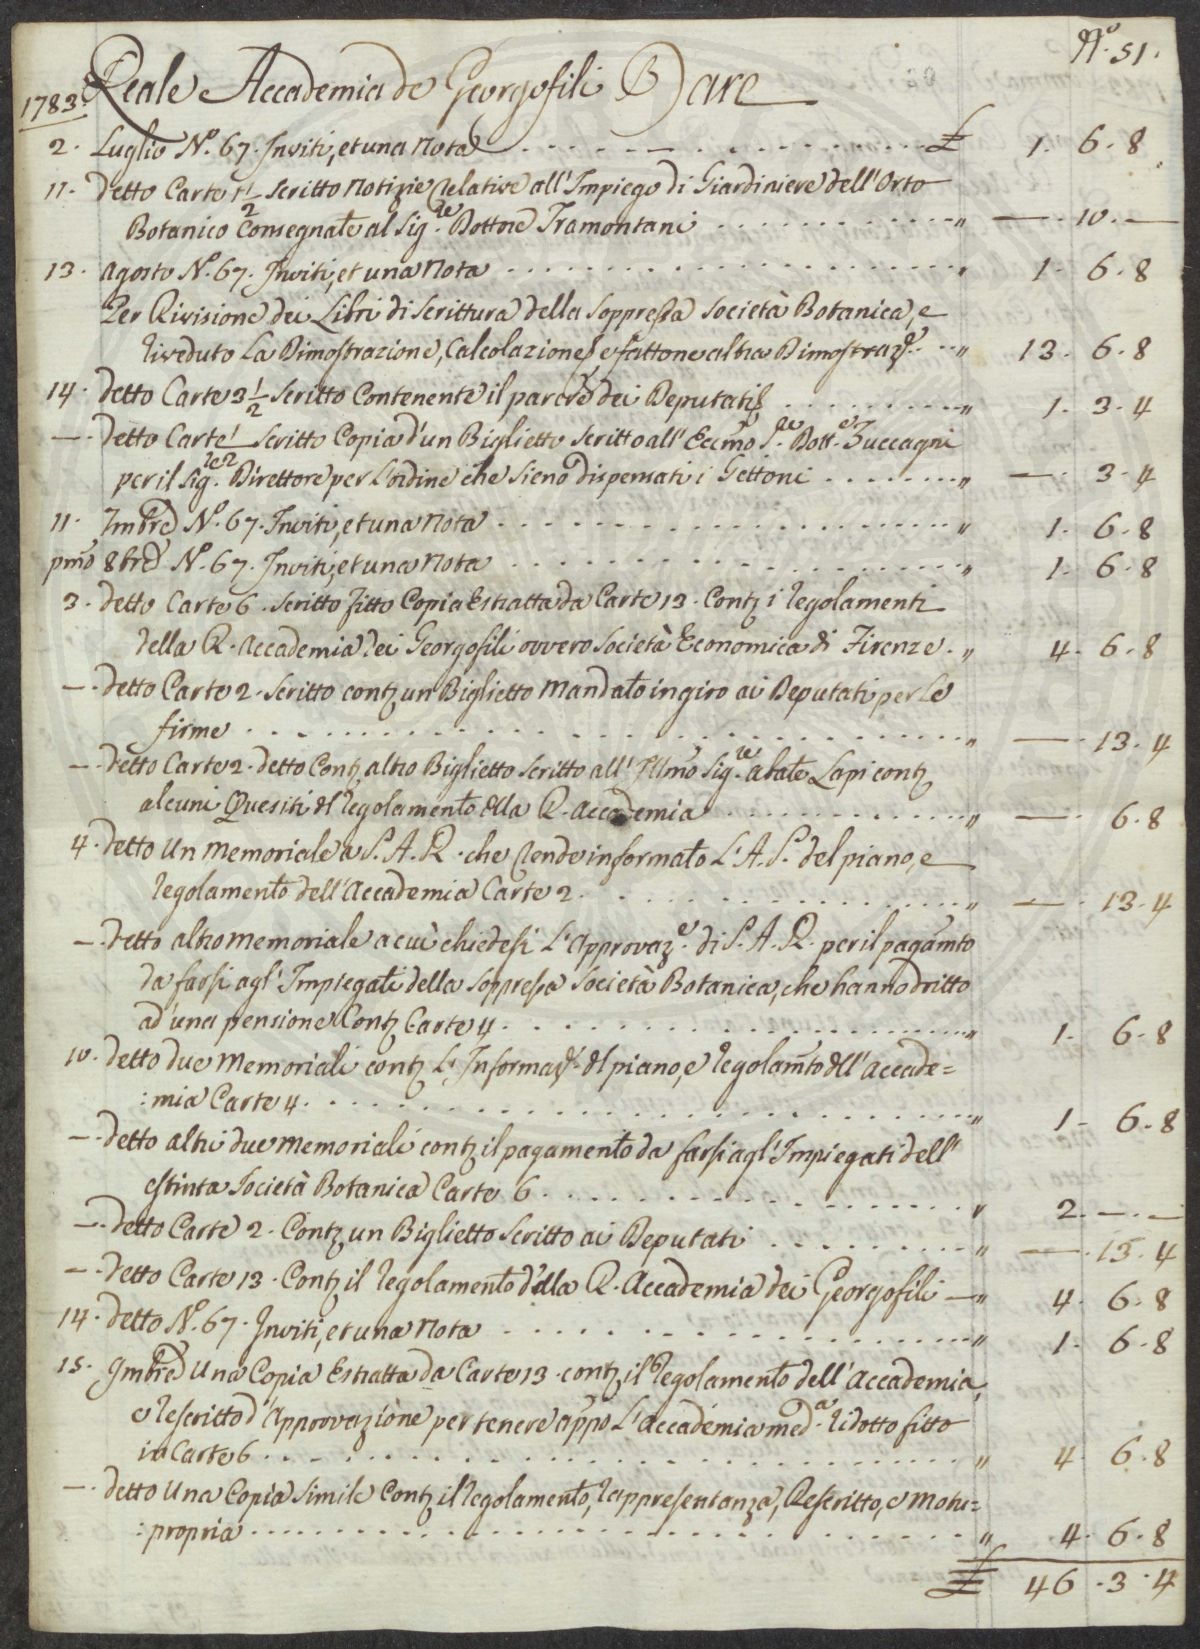 N.º 51.
Reale Accademia de Georgofili Dare
1783.
2. Luglio N.º 67. Inviti, et una Nota £ 1. 6. 8
11. Detto Carte 1 1/2 Scritto Notizie relative all'Impiego di Giardiniere dell'Orto
Botanico Consegnate al Sig.re Dottore Tramontani " — 10. —
13. Agosto N.º 67. Inviti, et una Nota " 1. 6. 8
Per Rivisione dei Libri di Scrittura della Soppressa Società Botanica, e
riveduto la Dimostrazione, Calcolazione, e fattone altra Dimostraz.e " 13. 6. 8
14. detto Carte 3 1/2 Scritto Contenente il parere dei Deputati " 1. 3. 4
—. detto Carte 1 Scritto Copia d'un Biglietto Scritto all'Eccmo S.re Dott.re Zuccagni
per il Sig.re Direttore per l'ordine che sieno dispensati i Gettoni " — 3. 4
11. 7mbre N.º 67. Inviti, et una Nota " 1. 6. 8
pmo 8bre N.º 67. Inviti, et una Nota " 1. 6. 8
3. detto Carte 6. Scritto fitto Copia Estratta da Carte 13. Contz i regolamenti
della R. Accademia dei Georgofili ovvero Società Economica di Firenze. " 4. 6. 8
—. detto Carte 2. Scritto contz un Biglietto Mandato in giro ai Deputati per le
firme " — 13. 4
—. detto Carte 2. detto Contz altro Biglietto Scritto all'Illmo Sig.re abate Lapi contz
alcuni Quesiti dl regolamento dlla R. Accademia " — 6. 8
4. detto Un Memoriale a S. A. R. che rende informato L'A. S. del piano, e
regolamento dell'Accademia Carte 2. " — 13. 4
—. detto altro memoriale a cui chiedesi L'approvaz.e di S. A. R. per il pagamto
da farsi agl'Impiegati della Soppressa Società Botanica, che hanno dritto
ad una pensione Contz Carte 4. " 1. 6. 8
10. detto due Memoriali contz L'Informaz.e dl piano, e regolamto dll'Accade=
:mia Carte 4. " 1. 6. 8
—. detto altri due memoriali contz il pagamento da farsi agl'Impiegati dell'
estinta Società Botanica Carte 6. " 2. —. —
—. detto Carte 2. Contz un Biglietto Scritto ai Deputati " — 13. 4
—. detto Carte 13. Contz il regolamento d'dlla R. Accademia dei Georgofili — " 4. 6. 8
14. detto N.º 67. Inviti, et una Nota " 1. 6. 8
15. 9mbre Una Copia Estratta da Carte 13. contz il regolamento dell'Accademia,
e rescritto d'Approvazione per tenere appo L'Accademia med.a ridotto fitto
in Carte 6. " 4. 6. 8
—. detto Una Copia Simile Contz il regolamento, rappresentanza, Rescritto, e Motu=
:propria " 4. 6. 8
£ 46. 3. 4